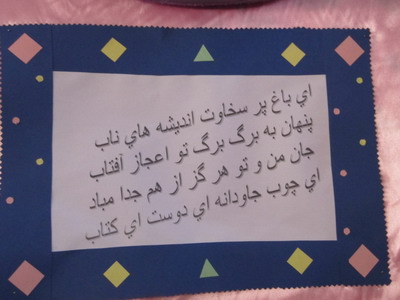 اي باغ پر سخاوت انديشه هاي ناب
پنهان به برگ برگ تو اعجاز آفتاب
جان من و تو هر گز از هم جدا مباد
اي چوب جاودانه اي دوست اي كتاب